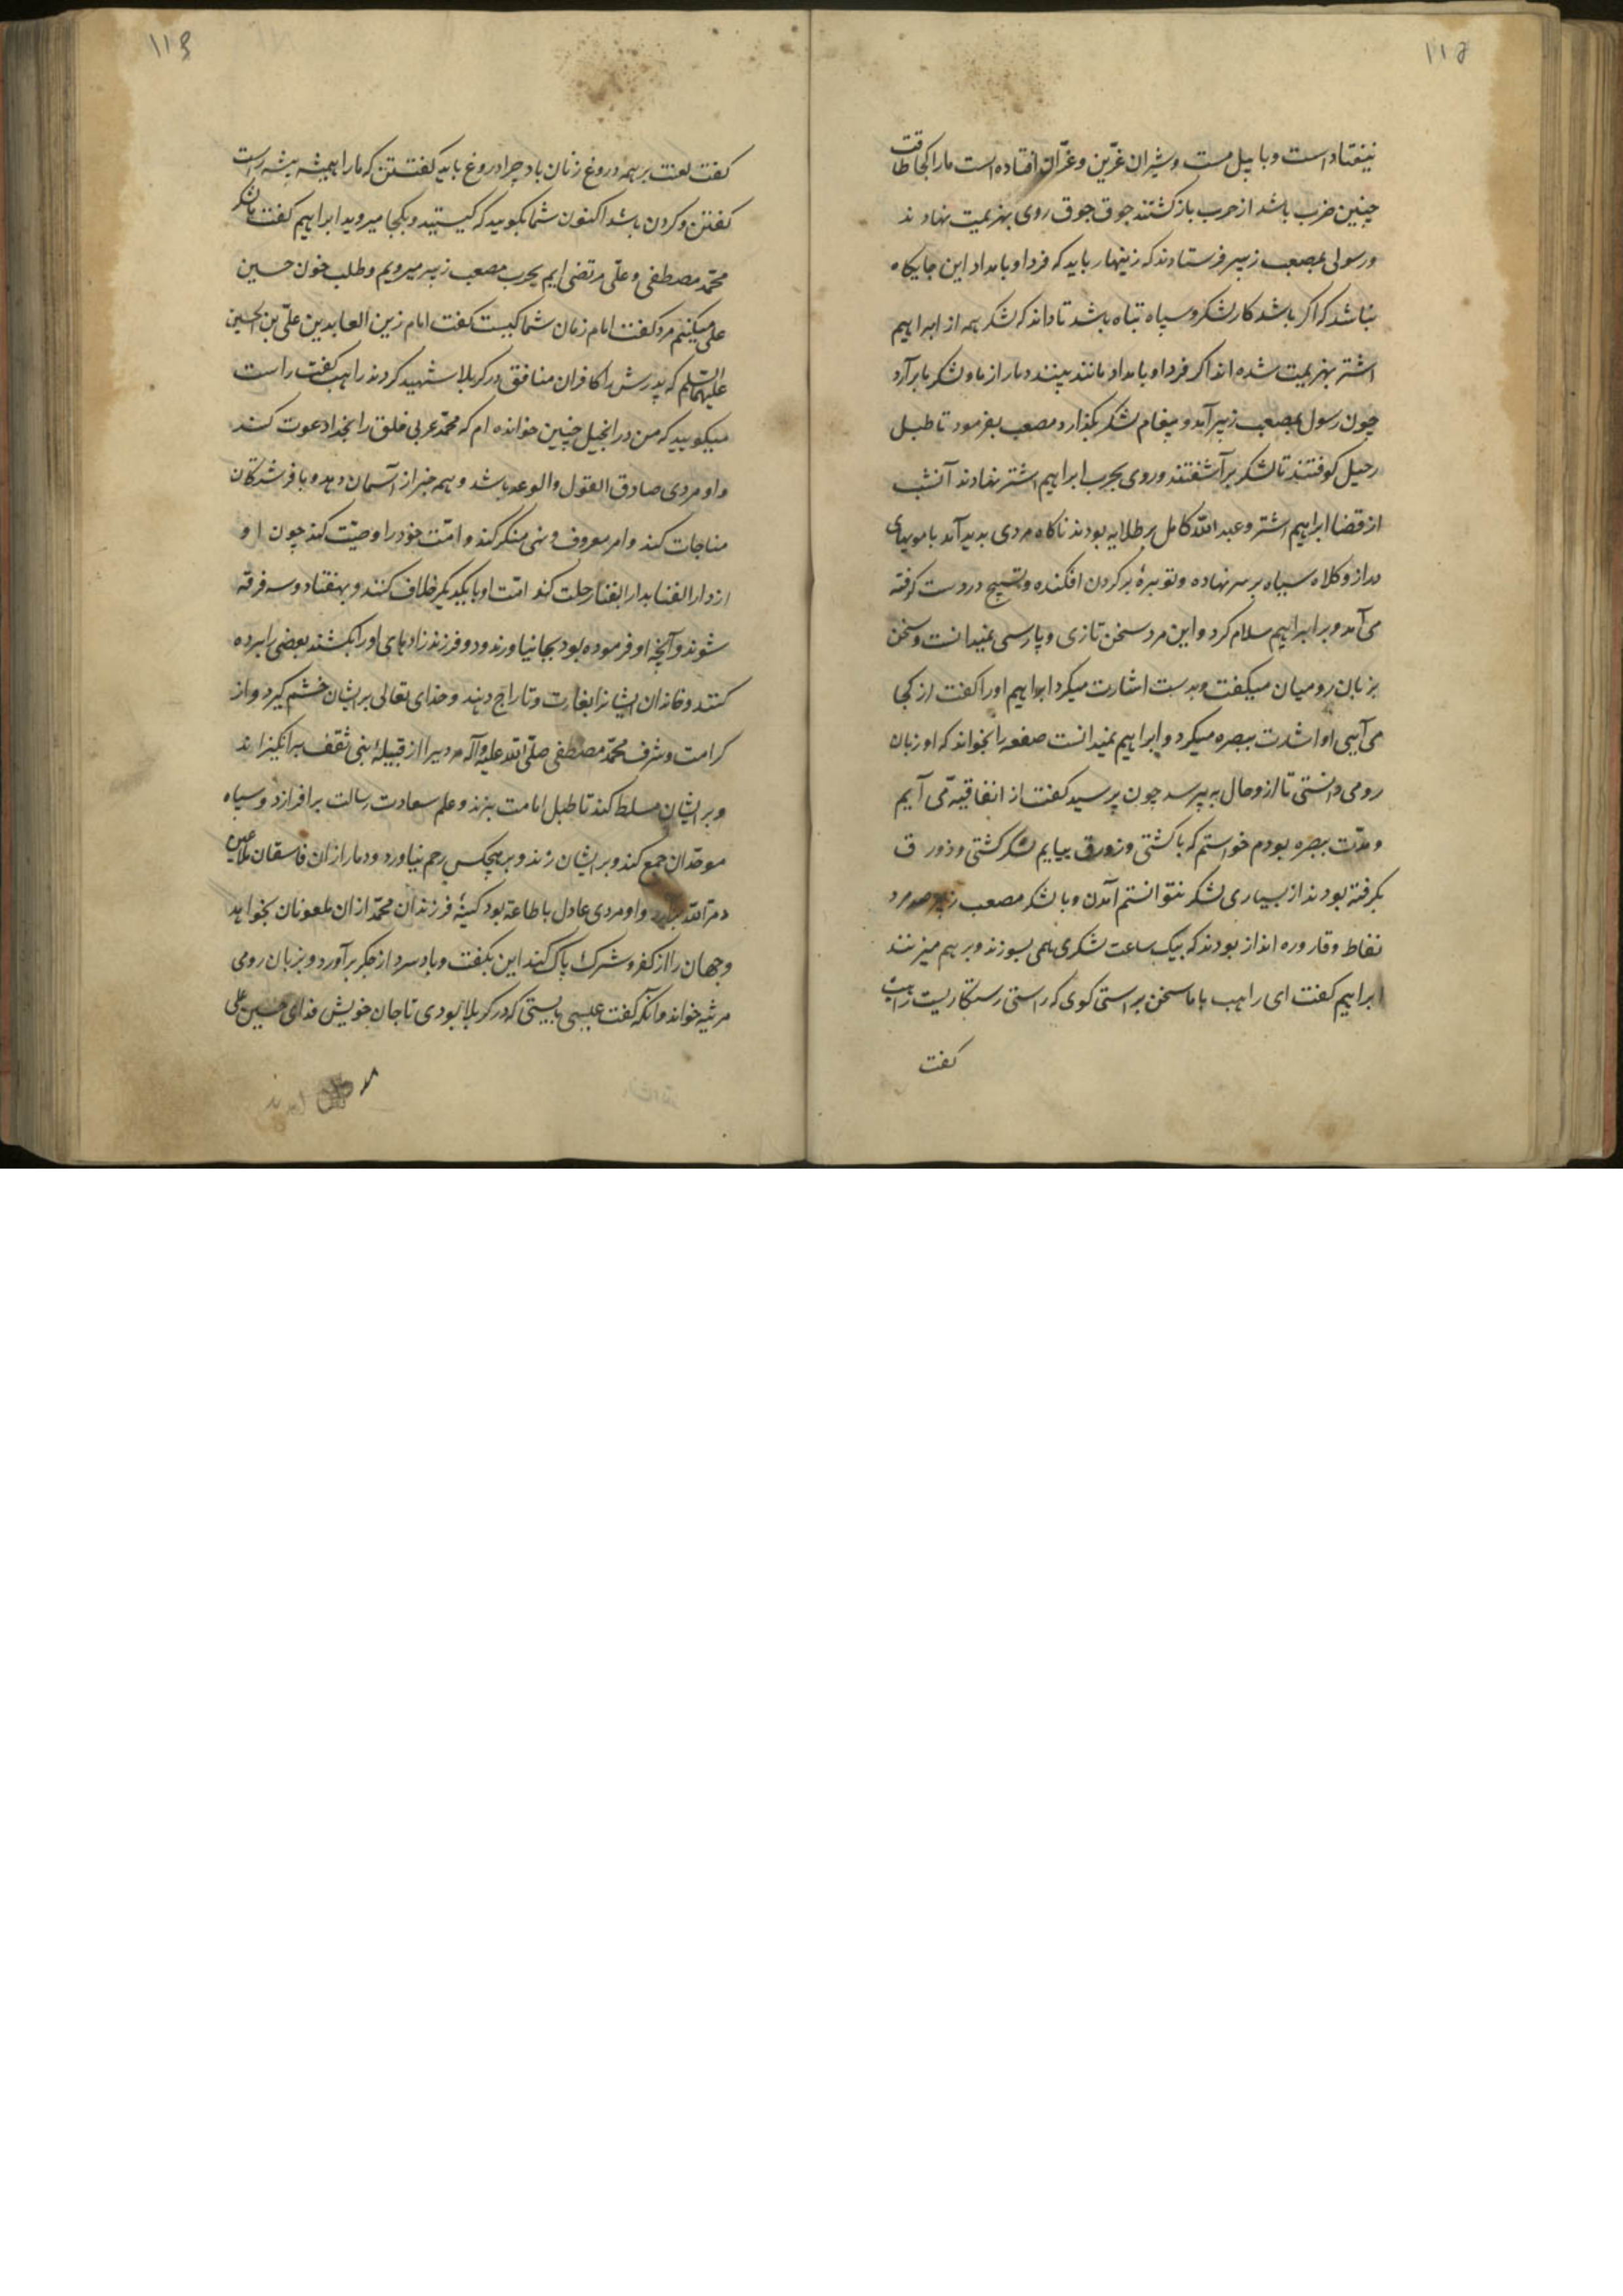 ۱۱۵
نیفتاد است و با پیل مست و شیران غرّین و غرّان افتاده است ما را کجا طاقت
چنین ضرب باشد از حرب باز گشتند جوق جوق روی بهزیمت نهادند
و رسولی بمصعب زبیر فرستادند که زینهار باید که فردا و بامداد این جایکاه
نباشد که اکر باشد کار لشکر و سپاه تباه باشد تا داند که لشکر همه از ابراهیم
اشتر بهزیمت شده اند اکر فردا و بامداد مانند بینند دمار از ما و لشکر ما برآرد
چون رسول بمصعب زبیر آمد و پیغام لشکر بگذارد مصعب بفرمود تا طبل
رحیل کوفتند تا لشکر برآشفتند و روی بحرب ابراهیم اشتر نهادند آنشب
از قضا ابراهیم اشتر و عبد الله کامل بر طلایه بودند ناکاه مردی بدید آمد با مویهای
دراز و کلاه سیاه بر سر نهاده و توبرهٔ بر کردن افکنده و تسبیح در دست کرفته
می آمد و بر ابراهیم سلام کرد و این مرد سخن تازی و پارسی نمیدانست و سخن
بزبان رومیان میکفت و بدست اشارت میکرد ابراهیم او را کفت از کجا
می آیی او اشارت ببصره میکرد و ابراهیم نمیدانست صفعه را بخواند که او زبان
رومی دانستی تا از و حال به پرسد چون پرسید کفت از انفاقیه می آیم
و مدّت ببصره بودم خواستم که با کشتی و زورق بیایم لشکر کشتی و زورق
بکرفته بودند از بسیاری لشکر نتوانستم آمدن و با لشکر مصعب زبیر مرد
نفاط و قاروره انداز بودند که بیک ساعت لشکری همی بسوزند و برهم میزنند
ابراهیم کفت ای راهب با ما سخن براستی کوی که راستی رستکاریست راهب
کفت
۱۱۴
کفت لعنت بر همه دروغ زنان باد چرا دروغ باید کفتن که ما را همیشه پیشه راست
کفتن و کردن باشد اکنون شما بکویید که کیستید و بکجا میروید ابراهیم کفت ما لشکر
محمّد مصطفی و علی مرتضی ایم بحرب مصعب زبیر میرویم و طلب خون حسین
علی میکنیم مرد کفت امام زمان شما کیست کفت امام زین العابدین علی بن الحسین
علیهما السّلم که پدرش را کافران منافق در کربلا شهید کردند راهب کفت راست
میکویید که من در انجیل چنین خوانده ام که محمّد عربی خلق را بخدا دعوت کند
و او مردی صادق القول والوعد باشد و همه خبر از آسمان دهد و با فرشتکان
مناجات کند و امر معروف و نهی منکر کند و امّت خود را وصیّت کند چون او
از دار الفنا بدار البقا رحلت کند امّت او با یکدیکر خلاف کنند و بهفتاد و سه فرقه
شوند و آنچه او فرموده بود بجا نیاورند و دو فرزند زادهای او را بکشند بعضی را برده
کنند و خاندان ایشانرا بغارت و تاراج دهند و خدای تعالی بر ایشان خشم کیرد و از
کرامت و شرف محمّد مصطفی صلّی الله علیه و آله مردیرا از قبیلهٔ بنی ثقف برانکیزاند
و بر ایشان مسلط کند تا طبل امامت بزند و علم سعادت رسالت برافرازد و سپاه
موحّدان جمع کند و بر ایشان زند و بر هیچکس رحم نیاورد و دمار از ان فاسقان ملاعین
دمر الله برآرد و او مردی عادل با طاعة بود کینهٔ فرزندان محمّد از ان ملعونان بخواهد
و جهان را از کفر و شرک پاک کند این بکفت و باد سرد از جکر برآورد و بزبان رومی
مرثیه خواند و آنکه کفت عیسی بایستی که در کربلا بودی تا جان خویش فدای حسین علی